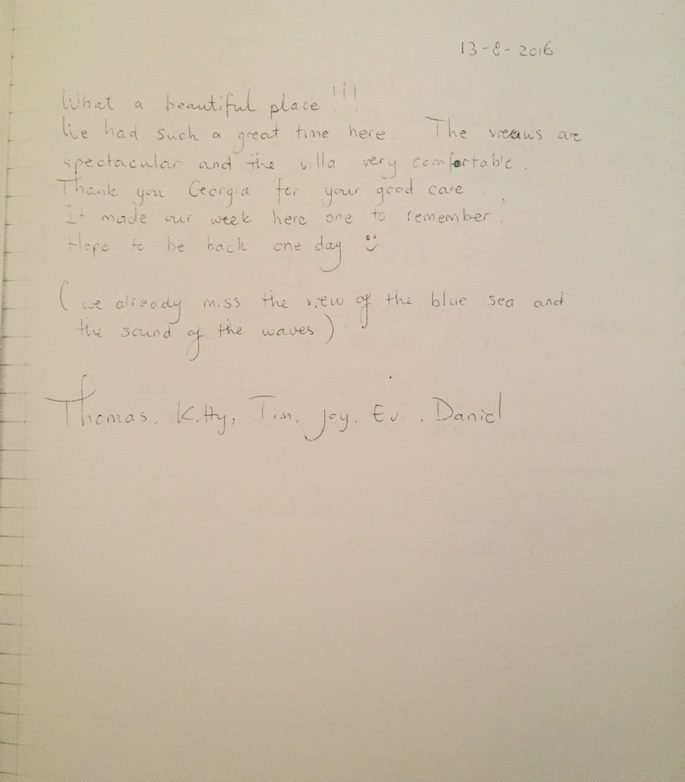 13-8-2016
What a beautiful place !!!
We had such a great time here. The vieuws are
spectacular and the villa very comfortable.
Thank you Georgia for your good care.
It made our week here one to remember.
Hope to be back one day :)
(we already miss the view of the blue sea and
the sound of the waves)
Thomas, Kitty, Tim, Joy, Daniel